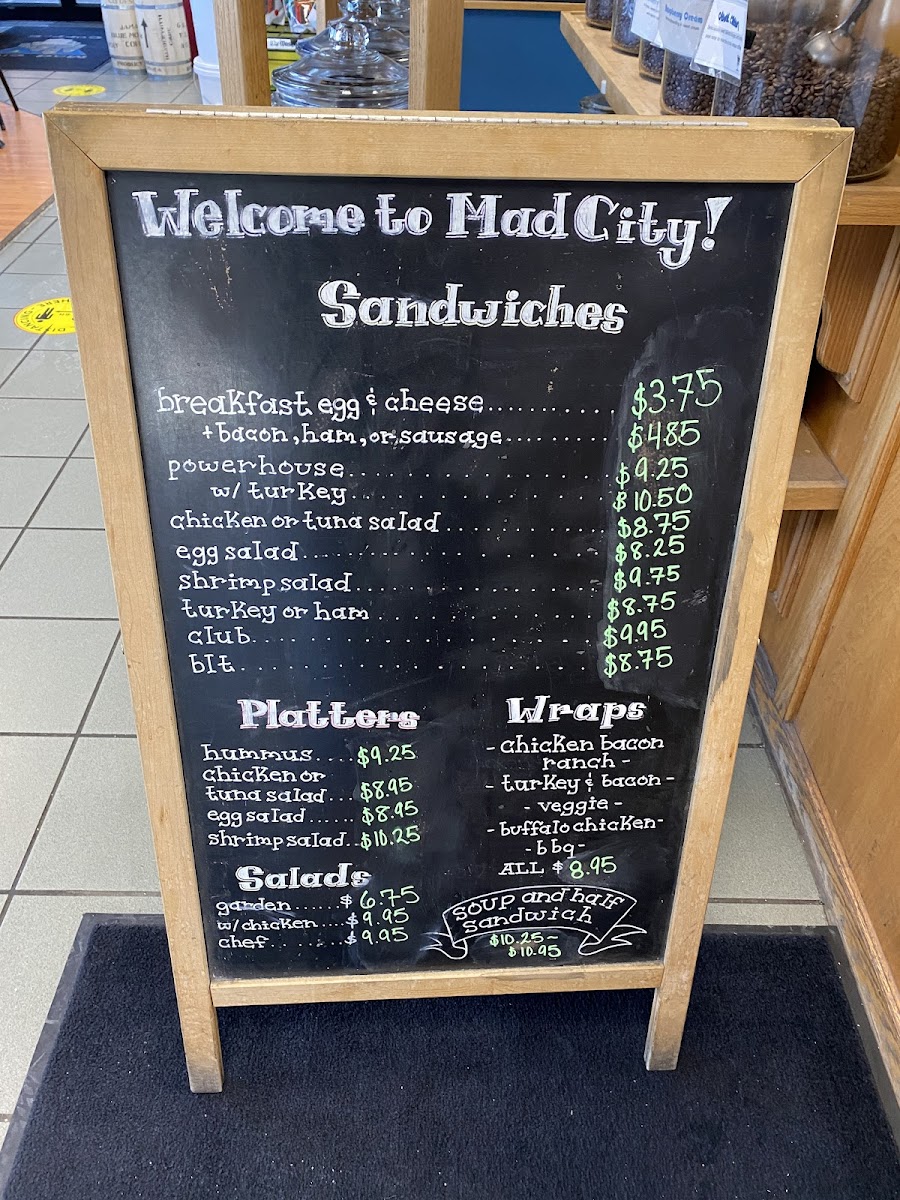 Welcome to Mad City!
Sandwiches
breakfast egg & cheese.......... $3.75
+bacon, ham, or, sausage.......... $4.85
powerhouse.................. $9.25
w/ turkey.................. $10.50
chicken or tuna salad.......... $8.75
egg salad.................. $8.25
shrimp salad.................. $9.75
turkey or ham.................. $8.75
club.................. $9.95
blt.................. $8.75
Platters
hummus.... $9.25
chicken or
tuna salad... $8.95
egg salad...... $8.95
shrimp salad.. $10.25
Salads
garden...... $6.75
w/chicken.... $9.95
chef........ $9.95
Wraps
- chicken bacon
ranch -
- turkey & bacon -
- veggie -
- buffalo chicken-
- bbq-
ALL $8.95
SOUP and half
sandwich
$10.25-
$10.95